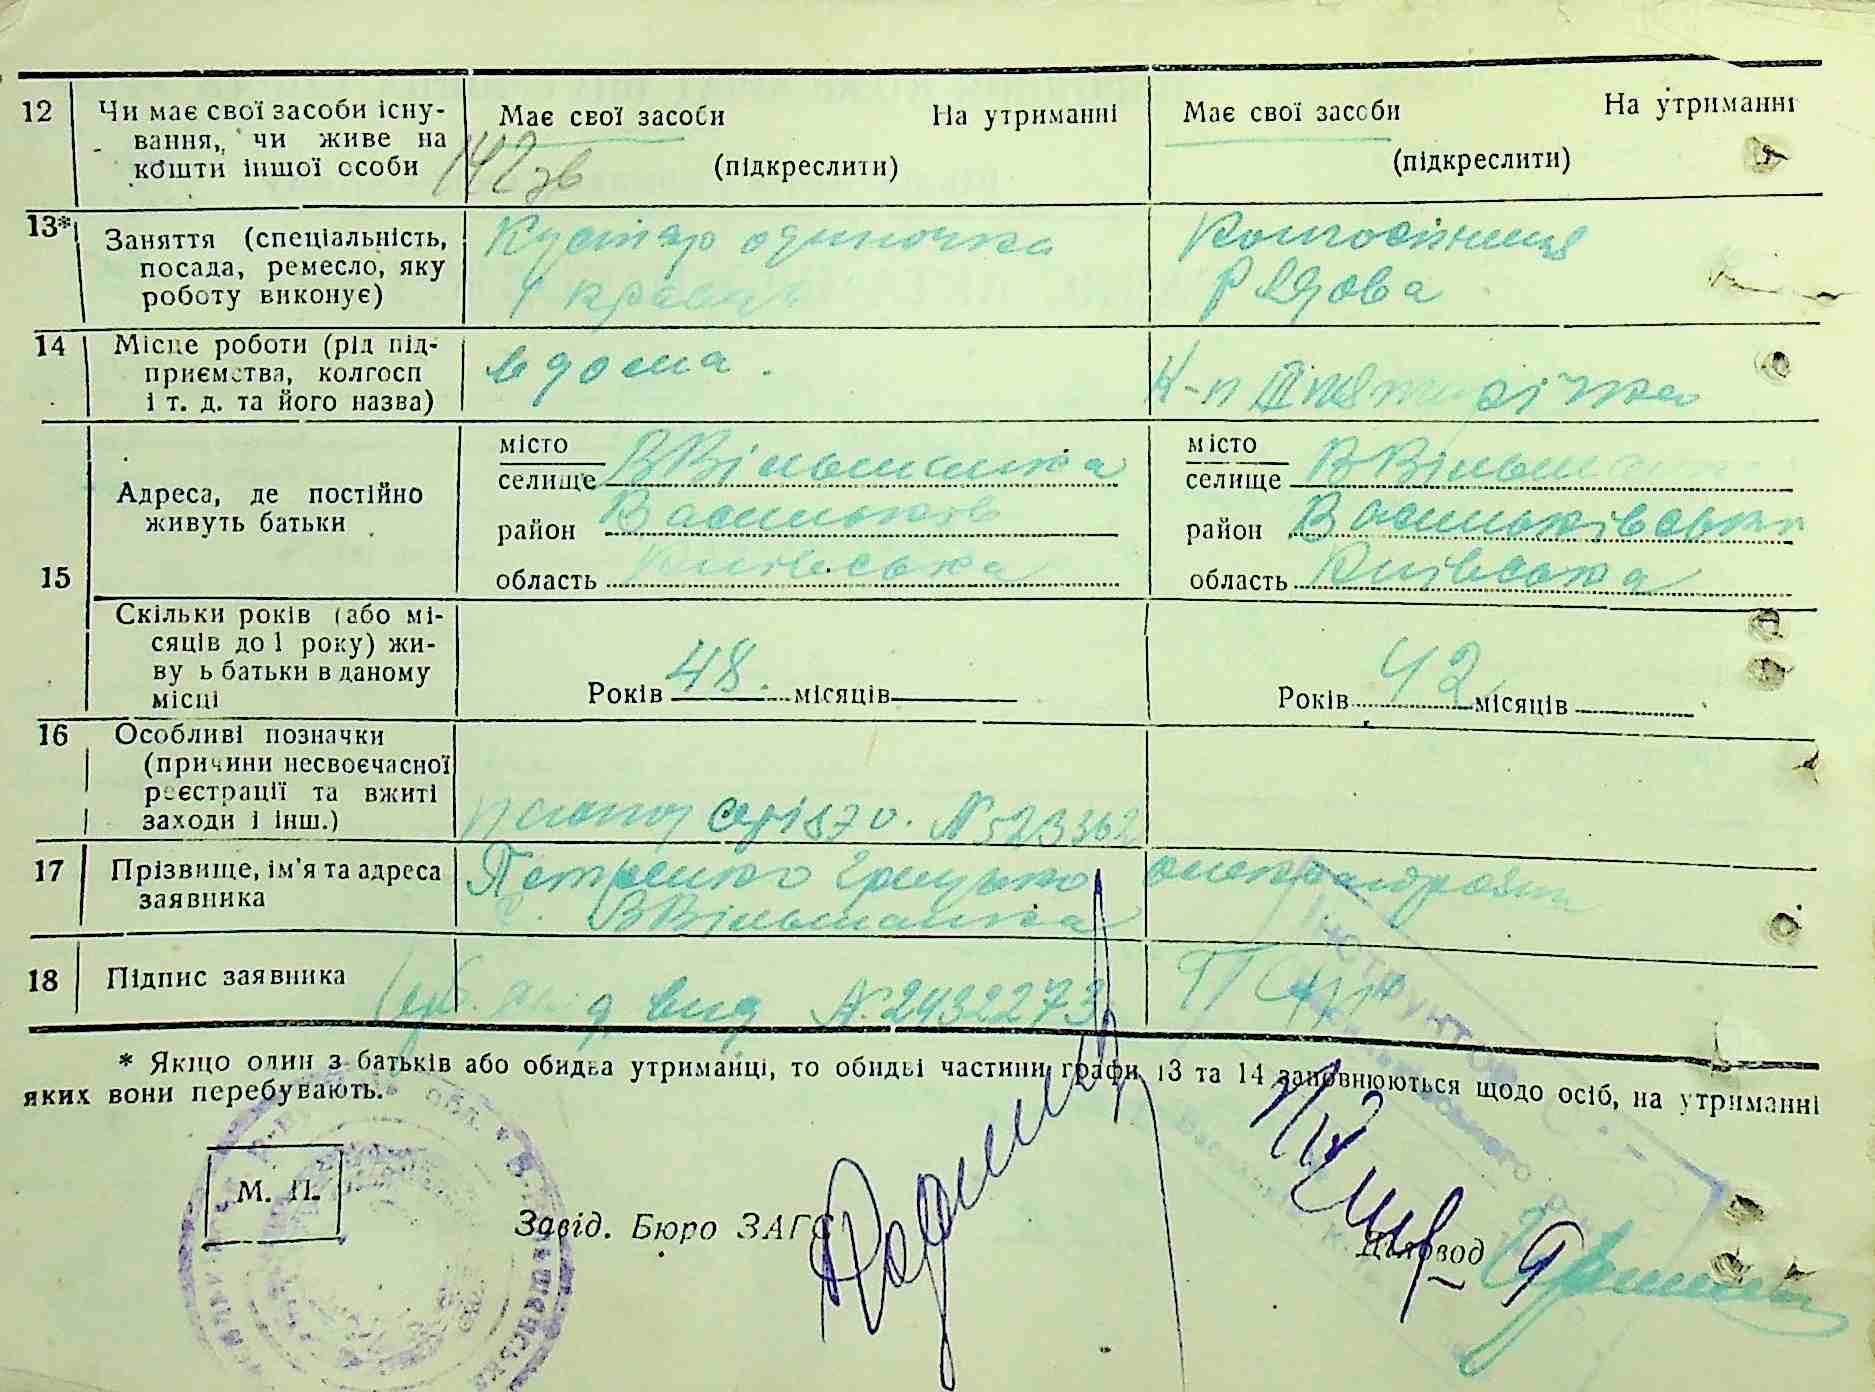 12 Чи має свої засоби існу-
вання, чи живе на
кошти іншої особи
Має свої засоби На утриманні
(підкреслити)
Має свої засоби На утриманні
(підкреслити)
142 зв
13* Заняття (спеціальність,
посада, ремесло, яку
роботу виконує)
Кустар одиночка
Колгоспниця
Рядова
14 Місце роботи (рід під-
приємства, колгосп
і т. д. та його назва)
вдома.
К-п
15 Адреса, де постійно
живуть батьки
місто
селище ВВільшанка
район Васильків
область Київська
місто
селище ВВільшанка
район Васильківськ
область Київська
Скільки років (або мі-
сяців до 1 року) жи-
ву ь батьки в даному
місці
Років 48. місяців
Років 42 місяців
16 Особливі позначки
(причини несвоєчасної
реєстрації та вжиті
заходи і інш.)
паспорт серія N 523362
17 Прізвище, ім'я та адреса
заявника
Петренко Грицько
с. ВВільшанка
18 Підпис заявника
вид N. 2432273
* Якщо один з батьків або обидва утриманці, то обидві частини графи 13 та 14 заповнюються щодо осіб, на утриманні
яких вони перебувають.
М. П.
Завід. Бюро ЗАГС
Діловод
ІНСТРУКТОР